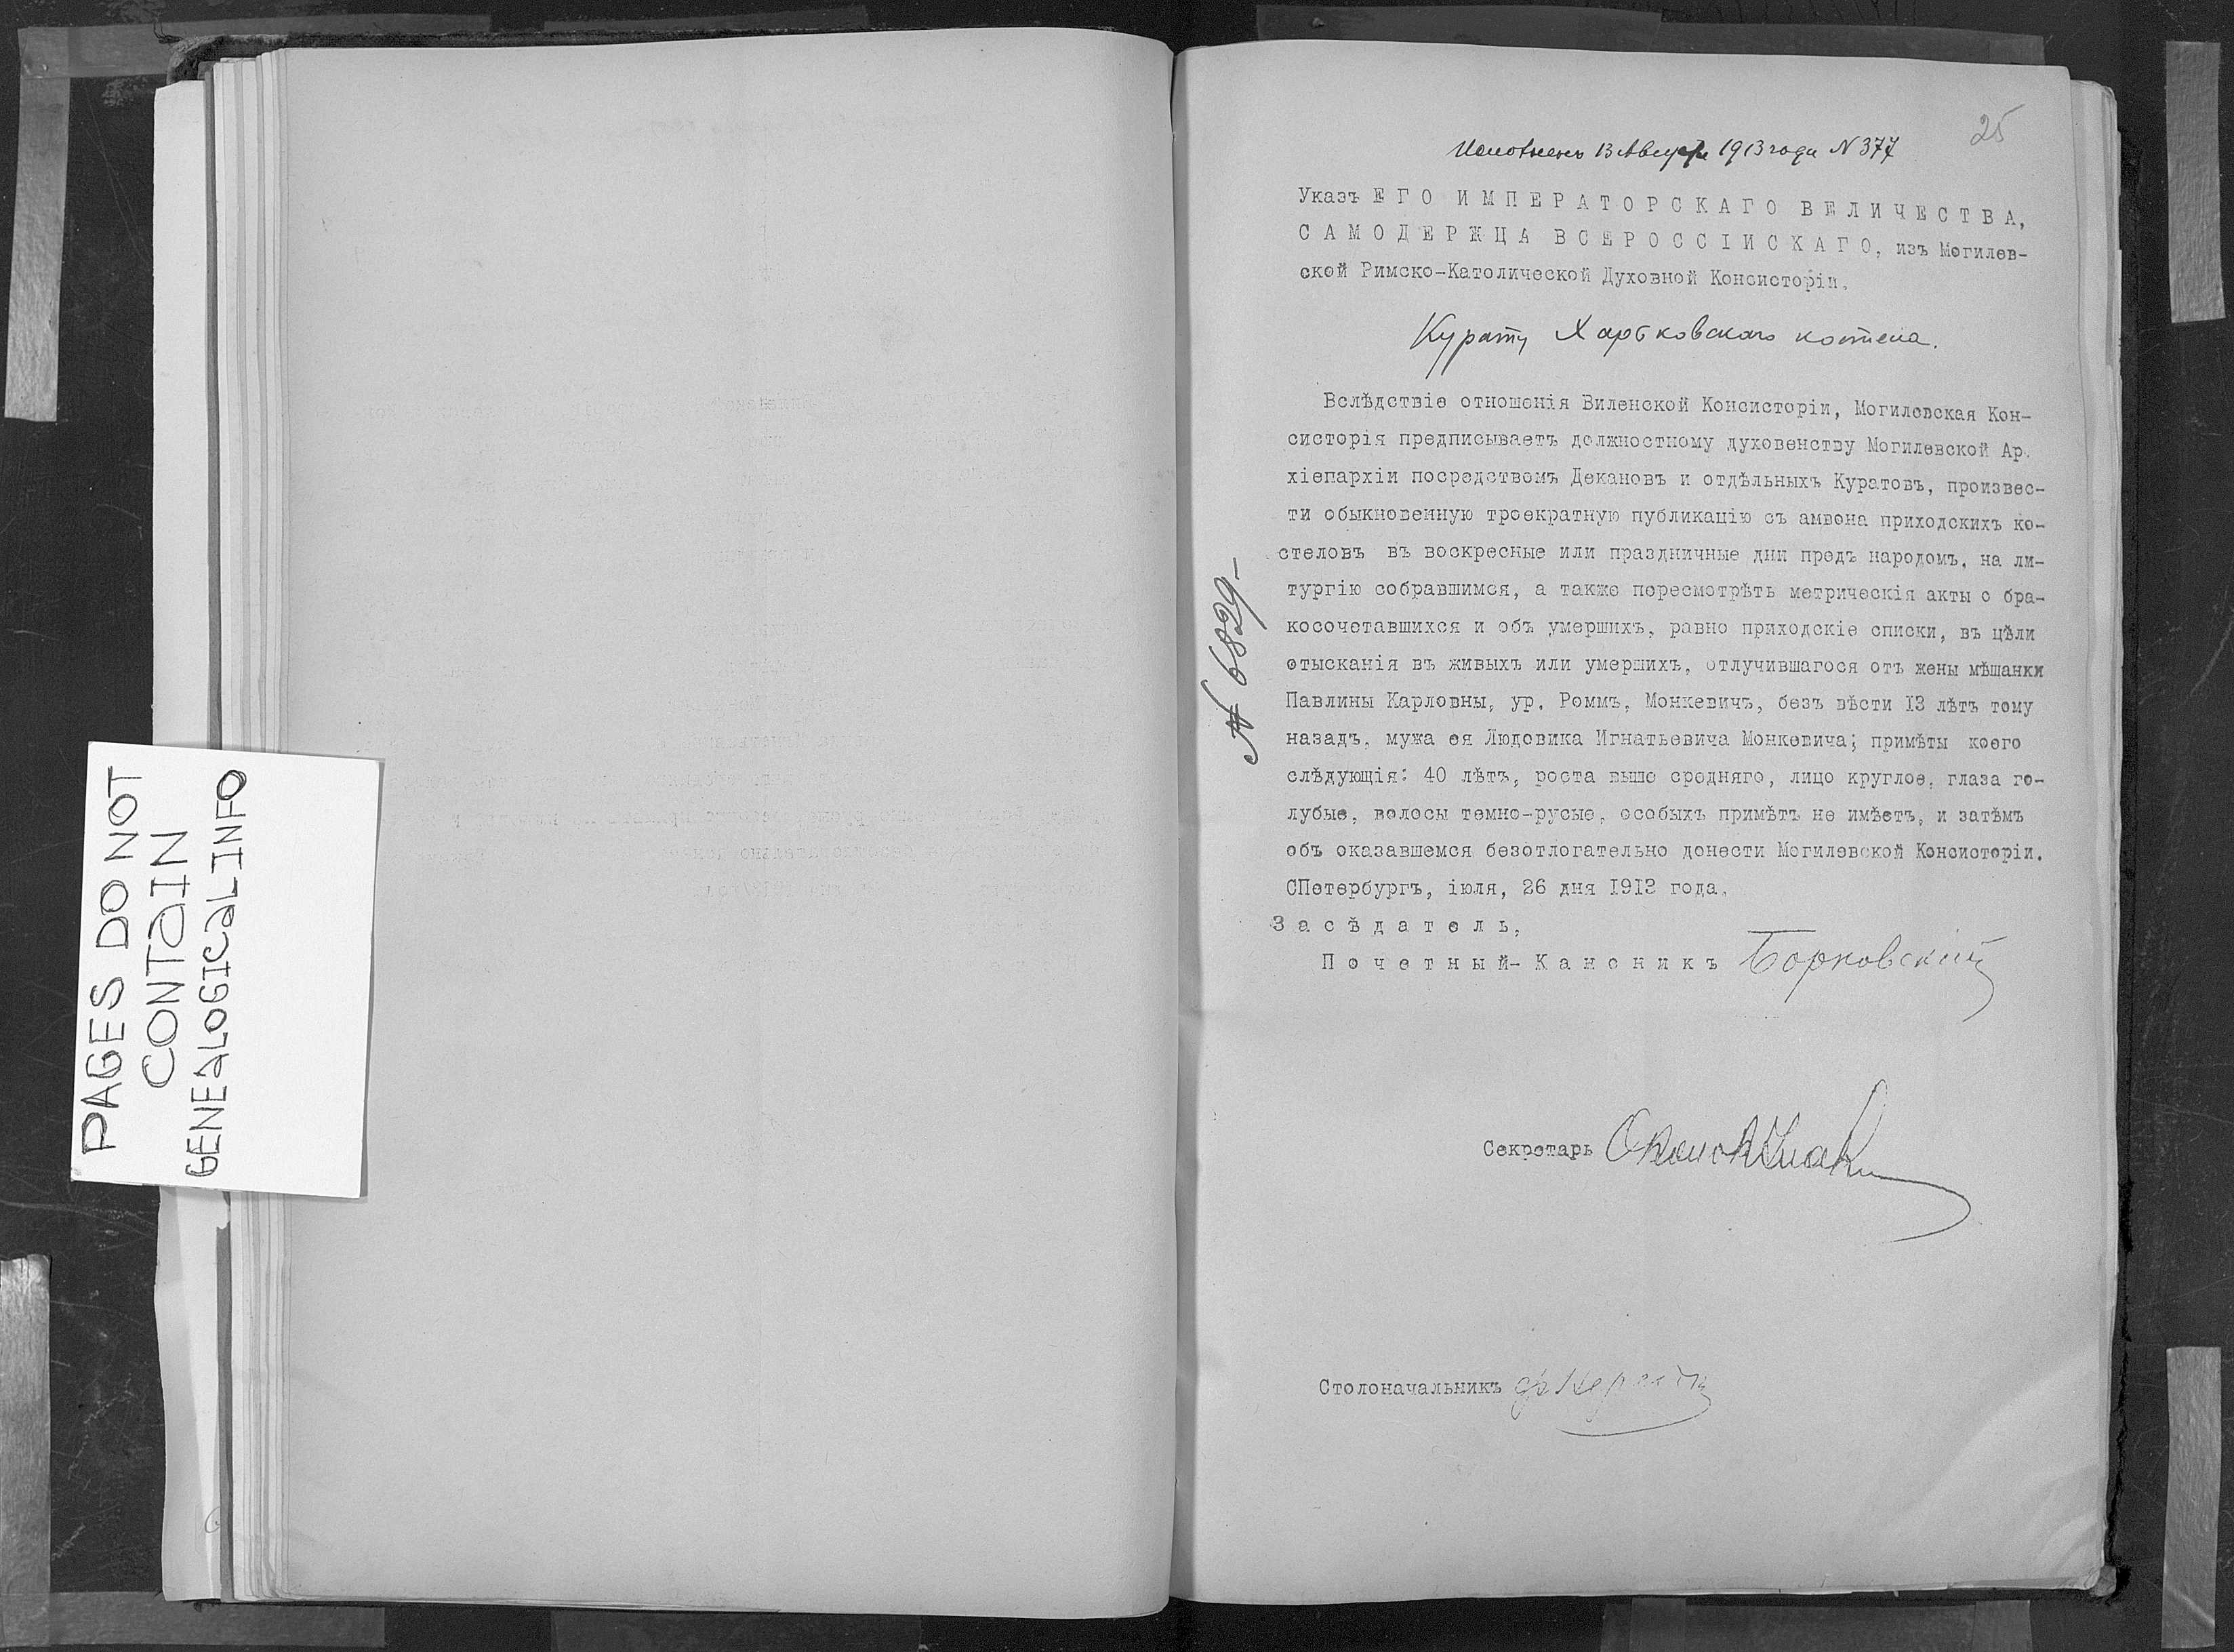 PAGES DO NOT
CONTAIN
GENEALOGICAL INFO
25
13 Августа 1913 года N 377
Указъ ЕГО ИМПЕРАТОРСКАГО ВЕЛИЧЕСТВА,
САМОДЕРЖЦА ВСЕРОССІЙСКАГО, изъ Могилев-
ской Римско-Католической Духовной Консисторіи.
Курату Харьковскаго костела.
Вслѣдствіе отношенія Виленской Консисторіи, Могилевская Кон-
систорія предписываетъ должностному духовенству Могилевской Ар-
хіепархіи посредствомъ Декановъ и отдѣльныхъ Куратовъ, произвес-
ти обыкновенную троекратную публикацію съ амвона приходскихъ ко-
стеловъ въ воскресные или праздничные дни предъ народомъ, на ли-
тургію собравшимся, а также пересмотрѣть метрическія акты о бра-
косочетавшихся и объ умершихъ, равно приходскіе списки, въ цѣли
отысканія въ живыхъ или умершихъ, отлучившагося отъ жены мѣщанки
Павлины Карловны, ур. Роммъ, Монкевичъ, безъ вѣсти 13 лѣтъ тому
назадъ, мужа ея Людовика Игнатьевича Монкевича; примѣты коего
слѣдующія: 40 лѣтъ, роста выше средняго, лицо круглое, глаза го-
лубые, волосы темно-русые, особыхъ примѣтъ не имѣетъ, и затѣмъ
объ оказавшемся безотлогательно донести Могилевской Консисторіи.
СПетербургъ, іюля, 26 дня 1913 года.
Засѣдатель,
Почетный-Каноникъ Борковскій
Секретарь
Столоначальникъ
№ 6829-